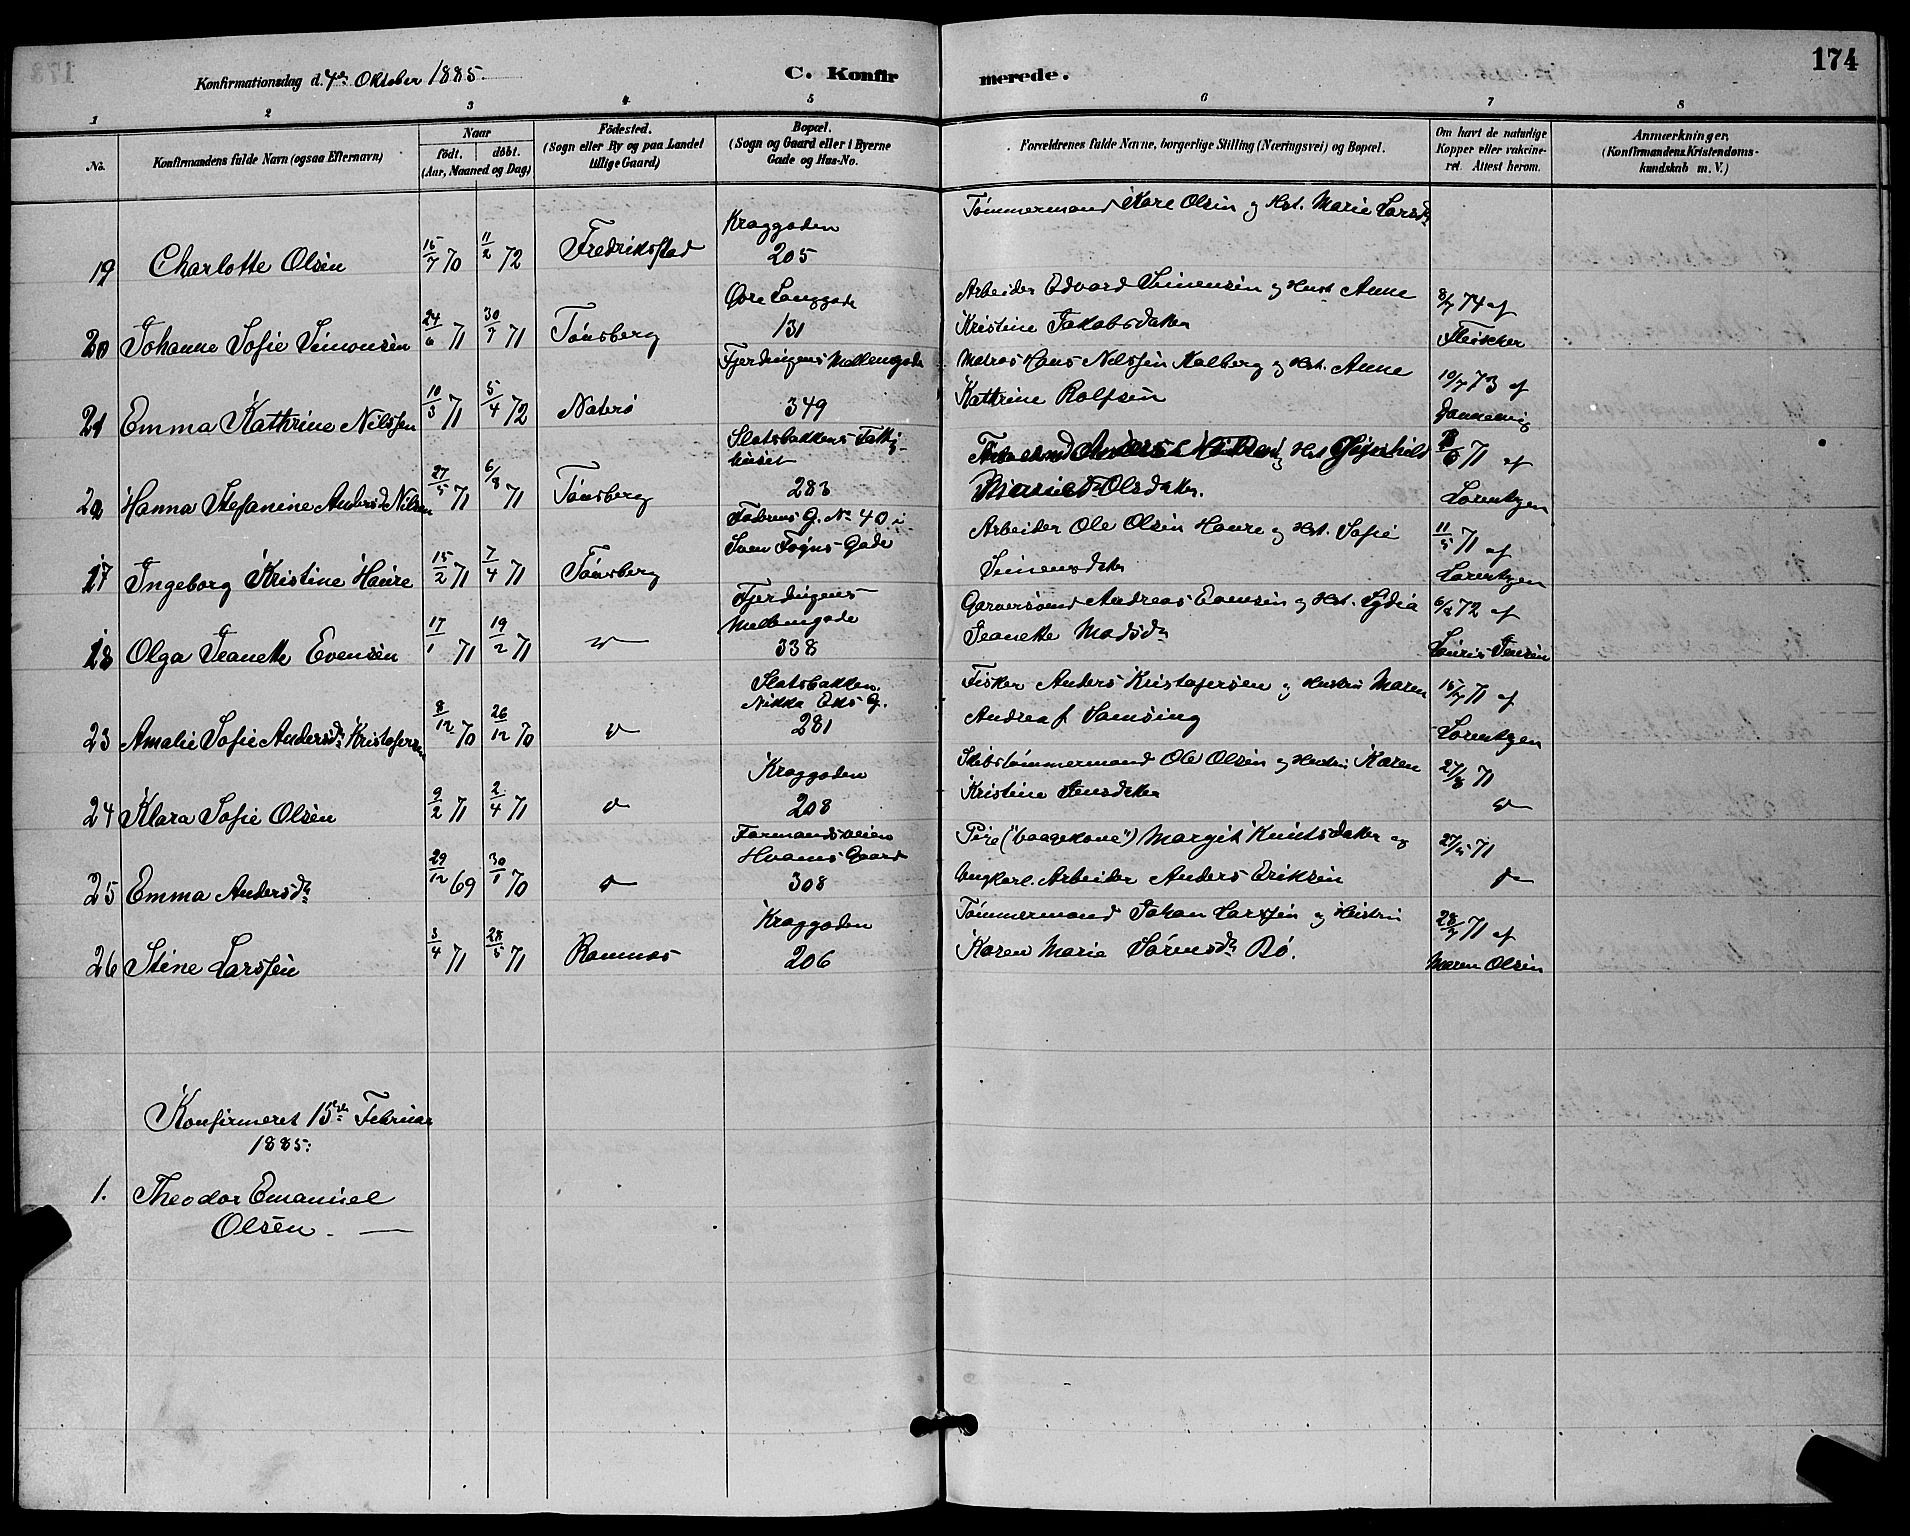 174
Konfirmationsdag d. 4de Oktober 1885.
C. Konfirmerede.
1 2 3 4 5 6 7 8
No.
Konfirmandens fulde Navn (ogsaa Efternavn)
Naar
født. døbt.
(Aar, Maaned og Dag)
Fødested.
(Sogn eller By og paa Landet
tillige Gaard)
Bopæl.
(Sogn og Gaard eller i Byerne
Gade og Hus-No.
Forældrenes fulde Navne, borgerlige Stilling (Næringsvei) og Bopæl.
Om havt de naturlige
Kopper eller vakcine-
ret. Attest herom.
Anmærkninger,
(Konfirmandens Kristendoms-
kundskab m. V.)
Kraggaden
Tømmermand Kare Olsen og Hst. Marie Larsdr
19 Charlotte Olsen 15/7 70 11/2 72 Fredriksstad 205
Øvre Langgade Arbeider Edvard Simensen og Hust Anne 8/7 74 af
20 Johanne Sofie Simonsen 24/6 71 30/7 71 Tønsberg 131 Kristine Jakobsdatter Fleischer
Fjerdingens Møllemgade Matros Hans Nilssen Kalberg og Hst. Anne 10/7 73 af
21 Emma Kathrine Nilssen 10/3 71 5/4 72 Nøterø 349 Kathrine Rolfsen Dannevig
Slotsbakkens Fattig-
huset Anders Hst 71 af
22 Hanna Stefanine Andersd. Nilsen 27/5 71 6/8 71 Tønsberg 283 Olsdatter. Lorentzen
Faderens G. No 40 i
Sam Foyns Gade Arbeider Ole Olsen Haure og Hst. Sofie 11/5 71 af
17 Ingeborg Kristine Haure 15/2 71 7/4 71 Tønsberg Simensdatter Lorentzen
Fjerdingens
Møllemgade Garversvend Andreas Evensen og Hst. Lydia 6/8 72 af
18 Olga Jeanette Evensen 17/1 71 19/2 71 " 338 Jeanette Madsdr Lauris Jensen
Slotsbakken,
Nikka Eks G. Fisker Anders Kristofersen og Hustru Maren 15/7 71 af
23 Amalie Sofie Andersdr Kristofersen 8/12 70 26/12 70 " 281 Andrea f. Samsing Lorentzen
Kraggaden Skibstømmermand Ole Olsen og Hustru Karen 27/8 71
24 Klara Sofie Olsen 9/2 71 2/4 71 " 208 Kristine Jensdatter "
Farmandsveien
Hvams Gaard Pige ("Vaagekone") Margit Knutsdatter og 27/5 71
25 Emma Andersdr 29/12 69 30/1 70 " 308 Ungkarl. Arbeider Anders Eriksen "
Kraggaden Tømmermand Johan Larssen og Hustru 28/7 71 af
26 Stine Larssen 3/4 71 28/5 71 Ramnæs 206 Karen Marie Sørensdr Bø. Maren Olsen
Konfirmeret 15de Februar
1885:
1. Theodor Emanuel
Olsen. —